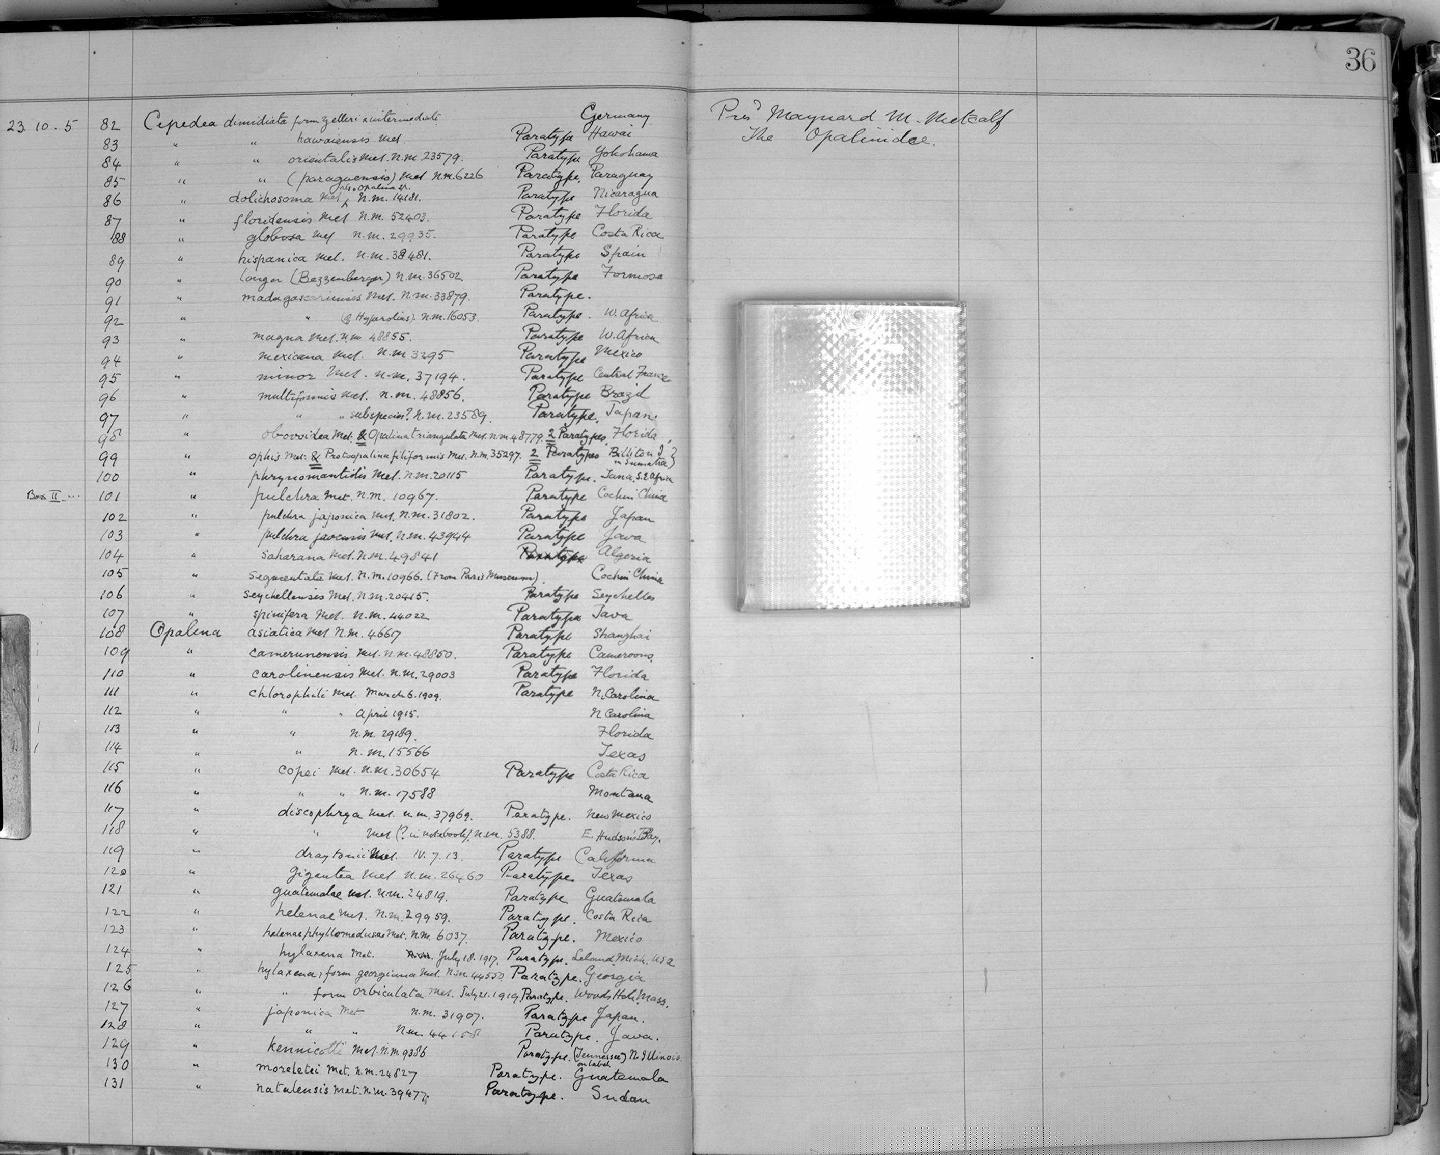 36
23. 10. 5 82 Cepedea dimidiata form zelleri x intermediate Germany Pres^d Maynard M. Metcalf
83 " " hawaiensis Met Paratype Hawai The Opalinidae.
84 " " orientalis Met. N.M. 23579. Paratype Yokohama
85 " " (paraguensis) Met N.M. 6226 Paratype. Paraguay
86 " dolichosoma Met also Opalina sp. N.M. 14181. Paratype Nicaragua
87 " floridensis Met N.M. 52403. Paratype Florida
88 " globosa Met N.M. 29935. Paratype Costa Rica
89 " hispanica Met. N.M. 38481. Paratype Spain
90 " longa (Bezzenberger) N.M. 36502 Paratype Formosa
91 " madagascariensis Met. N.M. 33879. Paratype.
92 " " (of Hyperolius). N.M. 16053. Paratype. W. Africa
93 " magna Met. N.M. 48855. Paratype W. Africa
94 " mexicana Met. N.M 3295 Paratype Mexico
95 " minor Met. N.M. 37194. Paratype Central France
96 " multiformis Met. N.M. 48856. Paratype Brazil
97 " " " subspecies? N.M. 23589. Paratype. Japan.
98 " obovoidea Met. & Opalina triangulata Met. N.M. 48779. 2 Paratypes Florida
99 " ophis Met. & Protoopalina filiformis Met. N.M. 35297. 2 Paratypes Billiton I (in Sumatra)?
100 " phrynomantidis Met. N.M. 20115 Paratype. Tana, S.E. Africa
Box II ... 101 " pulchra Met. N.M. 10967. Paratype Cochin China
102 " pulchra japonica Met. N.M. 31802. Paratype Japan
103 " pulchra javensis Met. N.M. 43944 Paratype Java
104 " saharana Met. N.M. 49841 Paratype Algeria
105 " segmentata Met. N.M. 10966. (From Paris Museum). Cochin China
106 " seychellensis Met. N.M. 20415. Paratype Seychelles
107 " spinifera Met. N.M. 44022 Paratype Java
108 Opalina asiatica Met N.M. 46617 Paratype Shanghai
109 " camerunensis Met. N.M. 48850. Paratype Cameroons.
110 " carolinensis Met. N.M. 29003 Paratype Florida
111 " chlorophili Met. March 6. 1909. Paratype N. Carolina
112 " " " April 1915. N Carolina
113 " " N.M. 29189. Florida
114 " " N.M. 15566 Texas
115 " copei Met. N.M. 30654 Paratype Costa Rica
116 " " " N.M. 17588 Montana
117 " discophrya Met. N.M. 37969. Paratype. New Mexico
118 " " Met (? in notebook). N.M. 5388. E. Hudsons Bay.
119 " draytonii Met. IV. 7. 13. Paratype California
120 " gigantea Met N.M. 26460 Paratype Texas
121 " guatemalae Met. N.M. 24819. Paratype Guatemala
122 " helenae Met. N.M. 29959. Paratype. Costa Rica
123 " helenae phyllomedusae Met. N.M. 6037. Paratype. Mexico
124 " hylaxena Met. July 18. 1917. Paratype. Leland Mich. U.S.A
125 " hylaxena; form georgiana Met. N.M. 44550 Paratype. Georgia
126 " " form orbiculata Met. July 21. 1919 Paratype. Woods Hole Mass.
127 " japonica Met N.M. 31907. Paratype Japan.
128 " " " N.M. 44158 Paratype. Java.
129 " kennicotti Met. N.M. 9386 Paratype. (Tennessee) on label N. Illinois.
130 " moreletei Met. N.M. 24827 Paratype. Guatemala
131 " natalensis Met. N.M. 39477. Paratype. Sudan